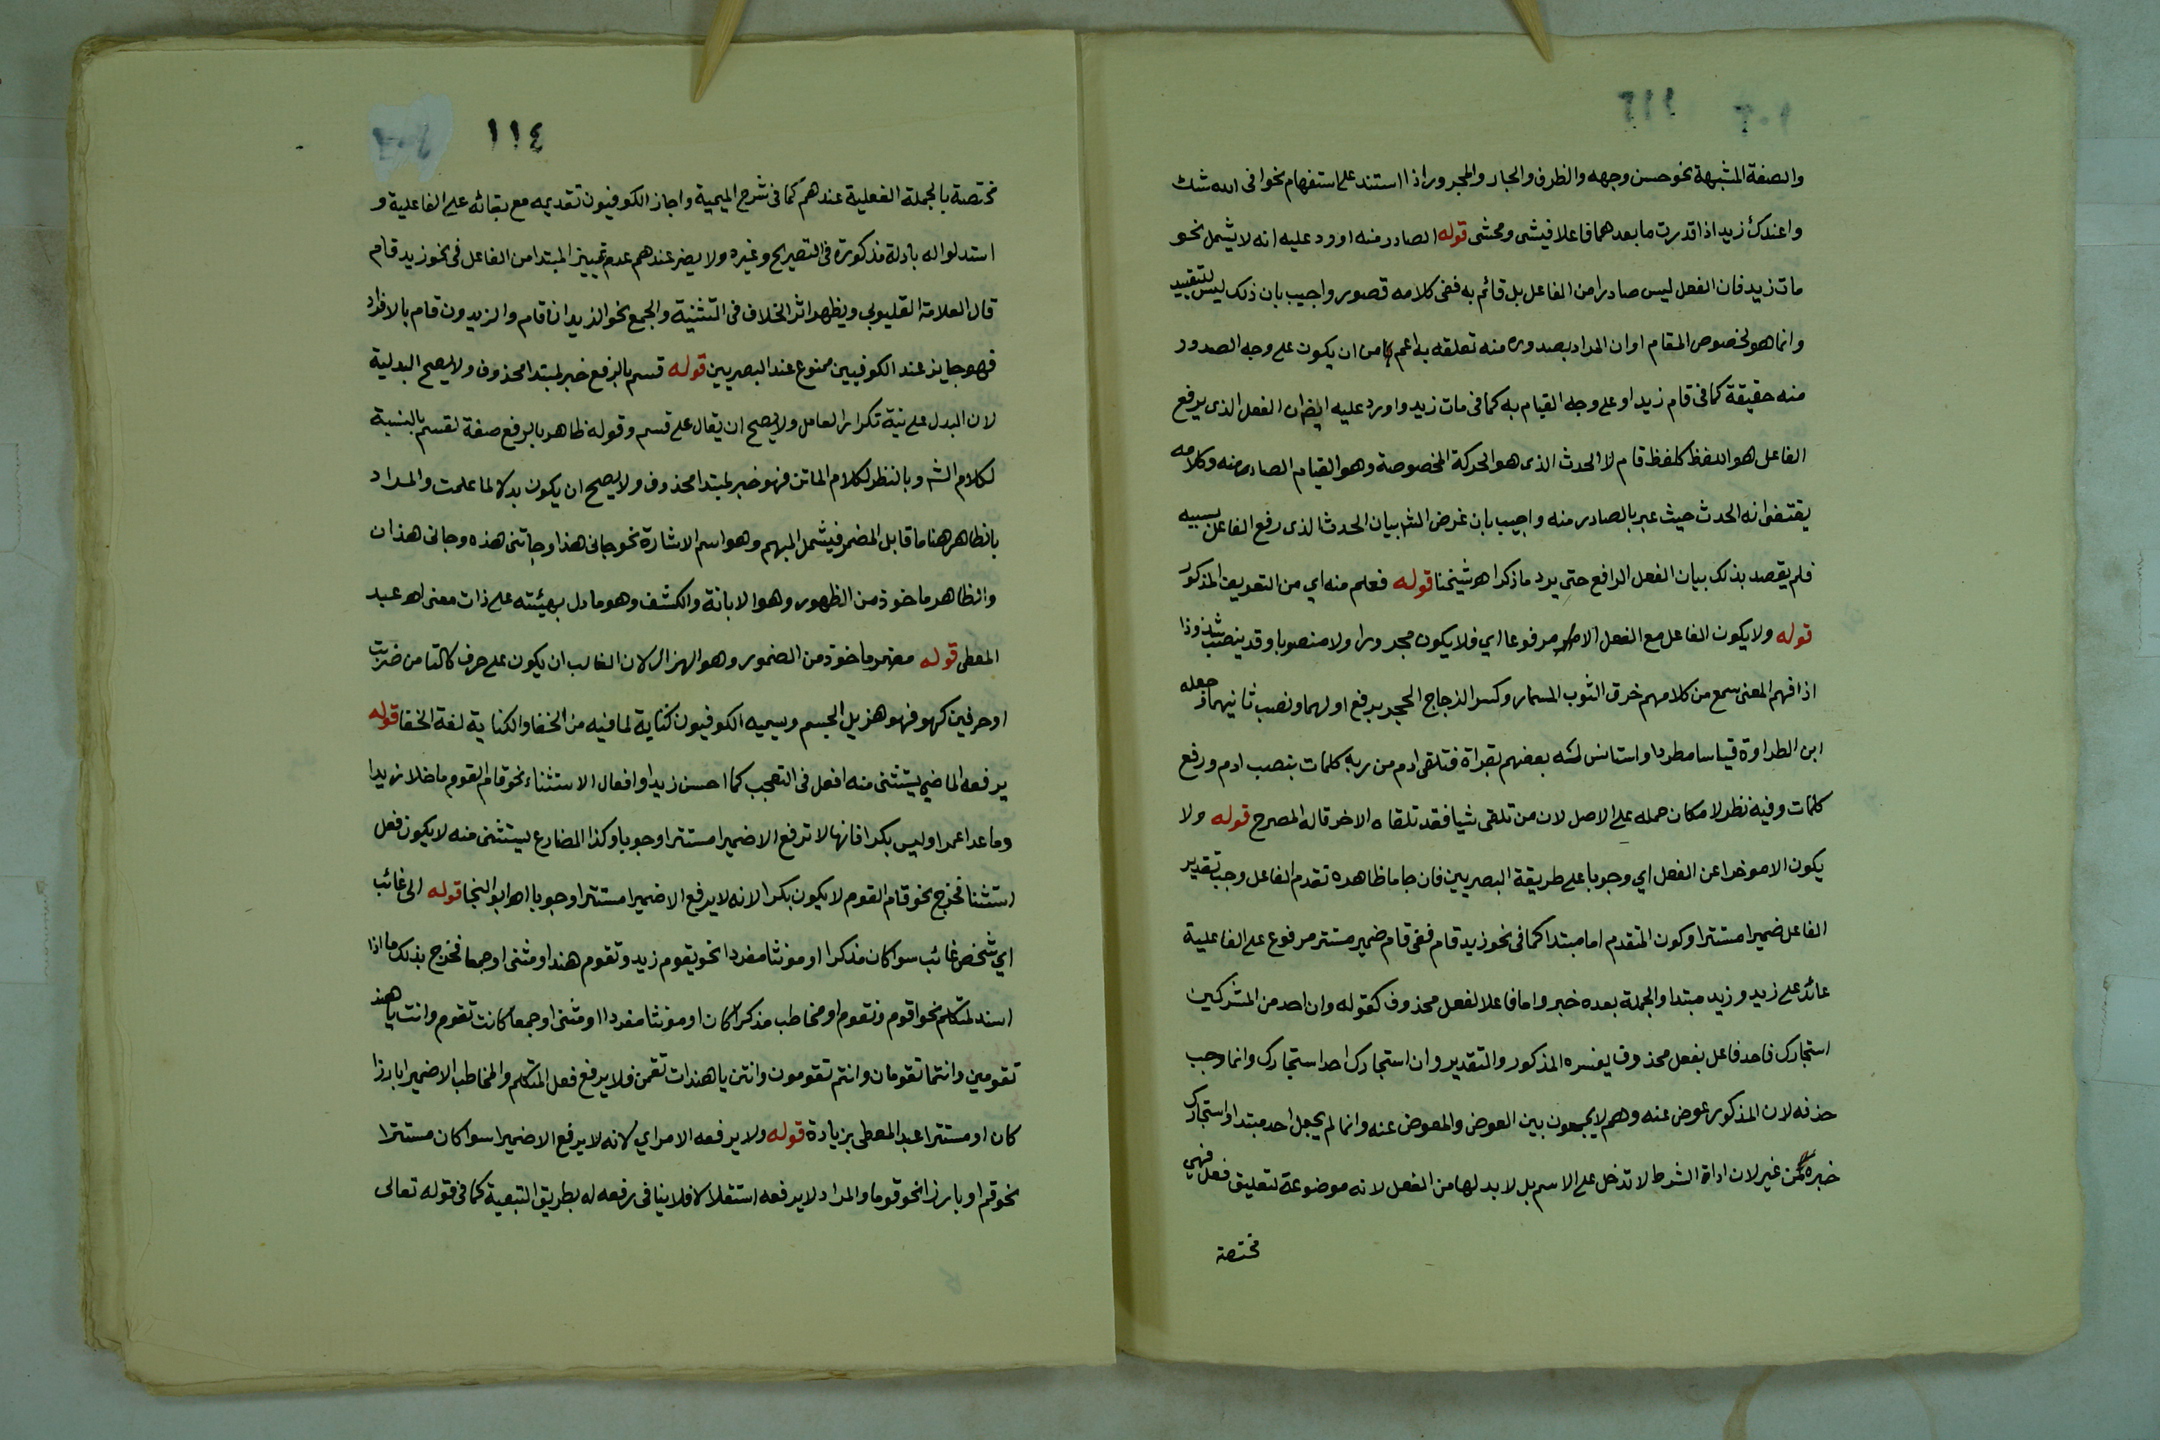 والصفة المشبهة نحو حسن وجهه والظرف والجار والمجرور اذا استند على استفهام نحو افى الله شك
واعندك زيد اذا قدرت ما بعدهما فاعلا فيشى ومحشى قوله الصادر منه اورد عليه انه لا يشمل نحو
مات زيد فان الفعل ليس صادرا من الفاعل بل قائم به ففى كلامه قصور واجيب بان ذلك ليس للتقييد
وانما هو لخصوص المقام او ان المراد بصدوره منه تعلقه به اعم من ان يكون على وجه الصدور
منه حقيقة كما فى قام زيد او على وجه القيام به كما فى مات زيد واورد عليه ايضا ان الفعل الذى يرفع
الفاعل هو اللفظ كلفظ قام لا الحدث الذى هو الحركة المخصوصة وهو القيام الصادر منه وكلامه
يقتضى انه الحدث حيث عبر بالصادر منه واجيب بان غرض الش بيان الحدث الذى رفع الفاعل بسببه
فلم يقصد بذلك بيان الفعل الرافع حتى يرد ما ذكر اهر شيخنا قوله فعلم منه اي من التعريف المذكور
قوله ولا يكون الفاعل مع الفعل الا مرفوعا اي فلا يكون مجرورا ولا منصوبا وقد ينصب شذوذا
اذا فهم المعنى سمع من كلامهم خرق الثوب المسمار وكسر الزجاج الحجر برفع اولهما ونصب ثانيهما وجعله
ابن الطراوة قياسا مطردا واستانس له بعضهم بقراة فتلقى ادم من ربه كلمات بنصب ادم ورفع
كلمات وفيه نظر لامكان حمله على الاصل لان من تلقى شيا فقد تلقاه الاخر قاله المصرح قوله ولا
يكون الا موخرا عن الفعل اي وجوبا على طريقة البصريين فان جا ما ظاهره تقدم الفاعل وجب تقدير
الفاعل ضميرا مستترا وكون المتقدم اما مبتدا كما فى نحو زيد قام ففى قام ضمير مستتر مرفوع على الفاعلية
عائد على زيد وزيد مبتدا والجملة بعده خبر واما فاعلا لفعل محذوف كقوله وان احد من المشركين
استجارك فاحد فاعل بفعل محذوف يفسره المذكور والتقدير وان استجارك احد استجارك وانما وجب
حذفه لان المذكور عوض عنه وهم لا يجمعون بين العوض والمعوض عنه وانما لم يجعل احد مبتدا واستجارك
خبره من غير لان اداة الشرط لا تدخل على الاسم بل لا بد لها من الفعل لانه موضوعة لتعليق فعل فهي
مختصة
١١٤
مختصة بالجملة الفعلية عندهم كما فى شرح الميمية واجاز الكوفيون تقديمه مع بقائه على الفاعلية و
استدلوا له بادلة مذكورة فى التصريح وغيره ولا يضر عندهم عدم تمييز المبتدا من الفاعل فى نحو زيد قام
قال العلامة القليوبى ويظهر اثر الخلاف فى التثنية والجمع نحو الزيدان قام والزيدون قام بالافراد
فهو جايز عند الكوفيين ممنوع عند البصريين قوله قسم بالرفع خبر لمبتدا محذوف ولا يصح البدلية
لان البدل على نية تكرار العامل ولا يصح ان يقال على قسم وقوله ظاهر بالرفع صفة لقسم بالنسبة
لكلام الش وبالنظر لكلام الماتن فهو خبر لمبتدا محذوف ولا يصح ان يكون بدلا لما علمت والمراد
بالظاهر هنا ما قابل المضمر فيشمل المبهم وهو اسم الاشارة نحو جانى هذا وجاتنى هذه وجانى هذان
والظاهر ماخوذ من الظهور وهو الابانة والكشف وهو ما دل بهيئته على ذات معنى اهر عبد
المعطى قوله مضمر ماخوذ من الضمور وهو الهزال لان الغالب ان يكون على حرف كالتا من ضربت
او حرفين كهو فهو هزيل الجسم ويسميه الكوفيون كناية لما فيه من الخفا والكناية لغة الخفا قوله
يرفعه الماضى يستثنى منه افعل فى التعجب كما احسن زيدا وافعال الاستثناء نحو قام القوم ما خلا زيدا
وما عدا عمرا وليس بكرا فانها لا ترفع الا ضميرا مستترا وجوبا وكذا المضارع يستثنى منه لا يكون فعل
استثنا فخرج نحو قام القوم لا يكون بكرا لانه لا يرفع الا ضميرا مستترا وجوبا اهر ابو النجا قوله الى غائب
اي شخص غائب سوا كان مذكرا او مونثا مفردا نحو يقوم زيد وتقوم هند او مثنى او جمعا فخرج بذلك ما اذا
اسند لمتكلم نحو اقوم ونقوم او مخاطب مذكرا كان او مونثا مفردا او مثنى او جمعا كانت تقوم وانت يا هند
تقومين وانتما تقومان وانتم تقومون وانتن يا هندات تقمن فلا يرفع فعل المتكلم والمخاطب الا ضميرا بارزا
كان او مستترا عبد المعطى بزيادة قوله ولا يرفعه الامر اي لانه لا يرفع الا ضميرا سوا كان مستترا
نحو قم او بارزا نحو قوما والمراد لا يرفعه استقلالا فلا ينافى رفعه له بطريق التبعية كما فى قوله تعالى